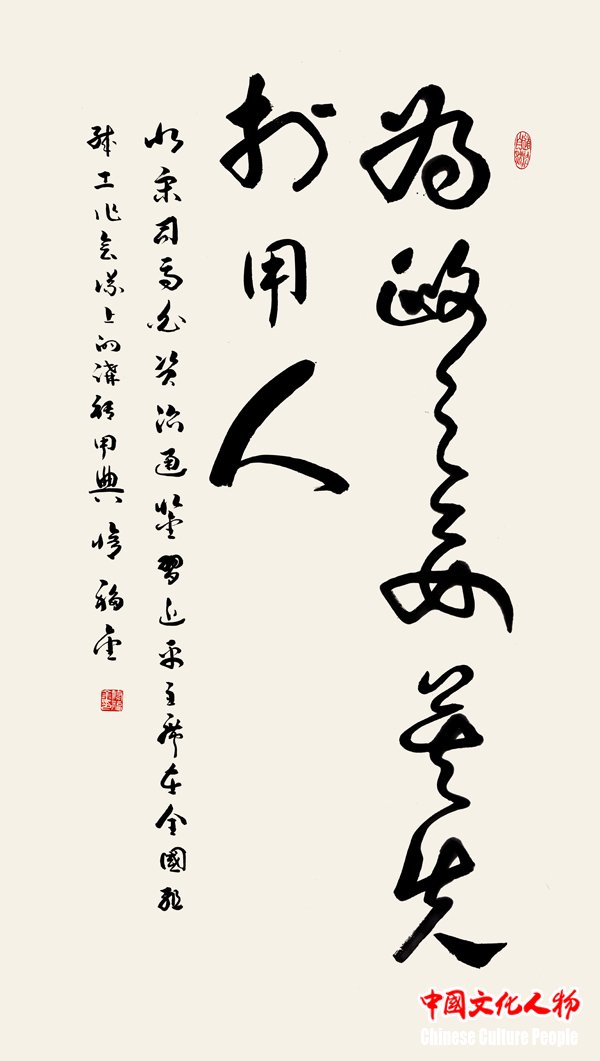 為政之要莫先
於用人
北宋司馬光資治通鑒習近平主席在全國組
織工作會議上的講話用典 福金
中國文化人物
Chinese Culture People